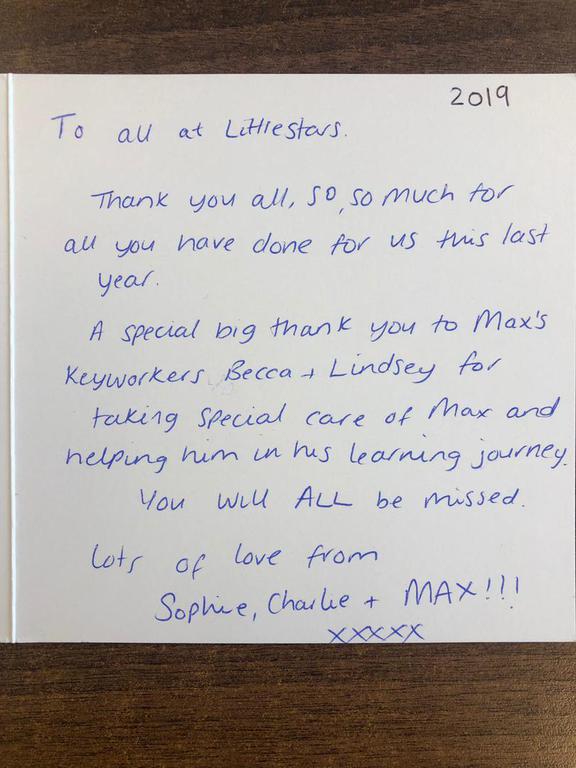 2019
To all at Littlestars.
Thank you all, so, so much for
all you have done for us this last
year.
A special big thank you to Max's
Keyworkers Becca + Lindsey for
taking special care of Max and
helping him in his learning journey.
You will ALL be missed.
Lots of love from
Sophie, Charlie + MAX!!!
xxxxx